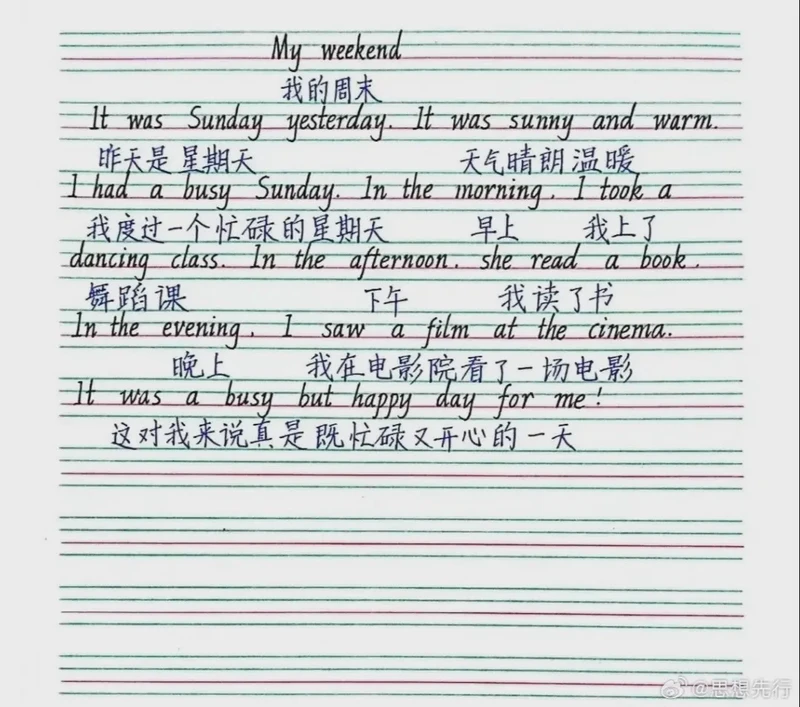 My weekend
我的周末
It was Sunday yesterday. It was sunny and warm.
昨天是星期天 天气晴朗温暖
I had a busy Sunday. In the morning, I took a
我度过一个忙碌的星期天 早上 我上了
dancing class. In the afternoon. she read a book.
舞蹈课 下午 我读了书
In the evening, I saw a film at the cinema.
晚上 我在电影院看了一场电影
It was a busy but happy day for me!
这对我来说真是既忙碌又开心的一天
@思想先行